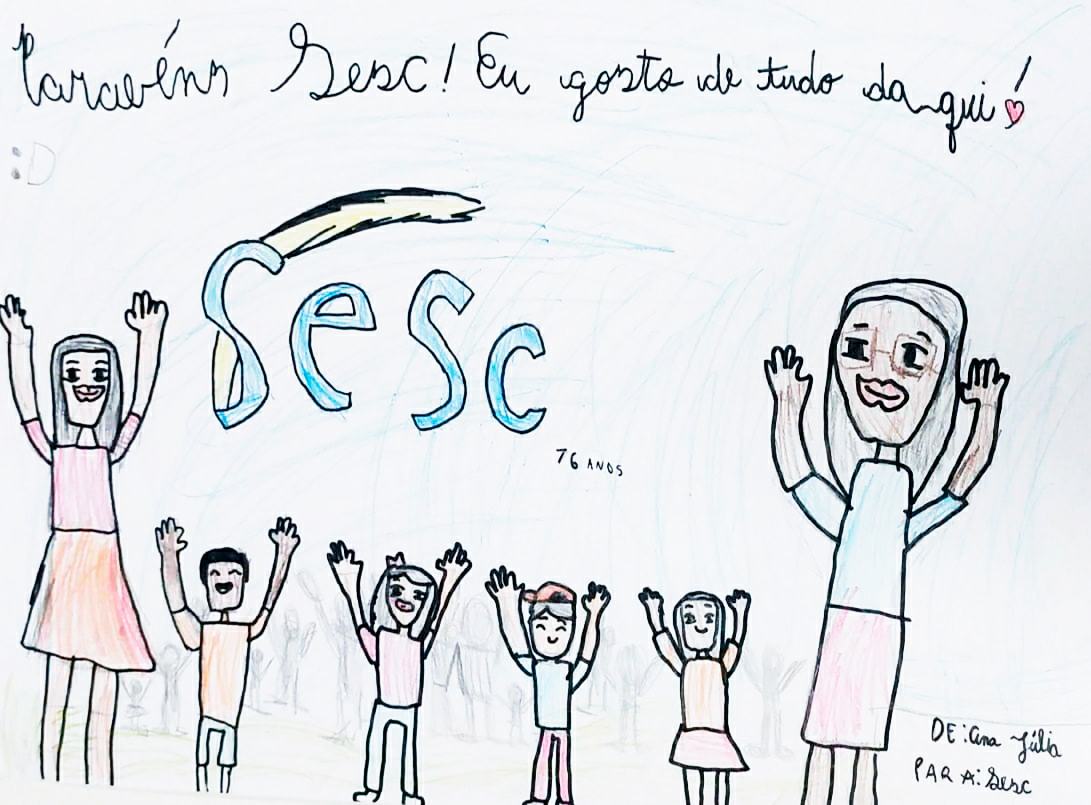 Paravéns Sesc! Eu gosto de tudo daqui!
:D
Sesc
76 ANOS
DE: Ana Júlia
PARA: Sesc